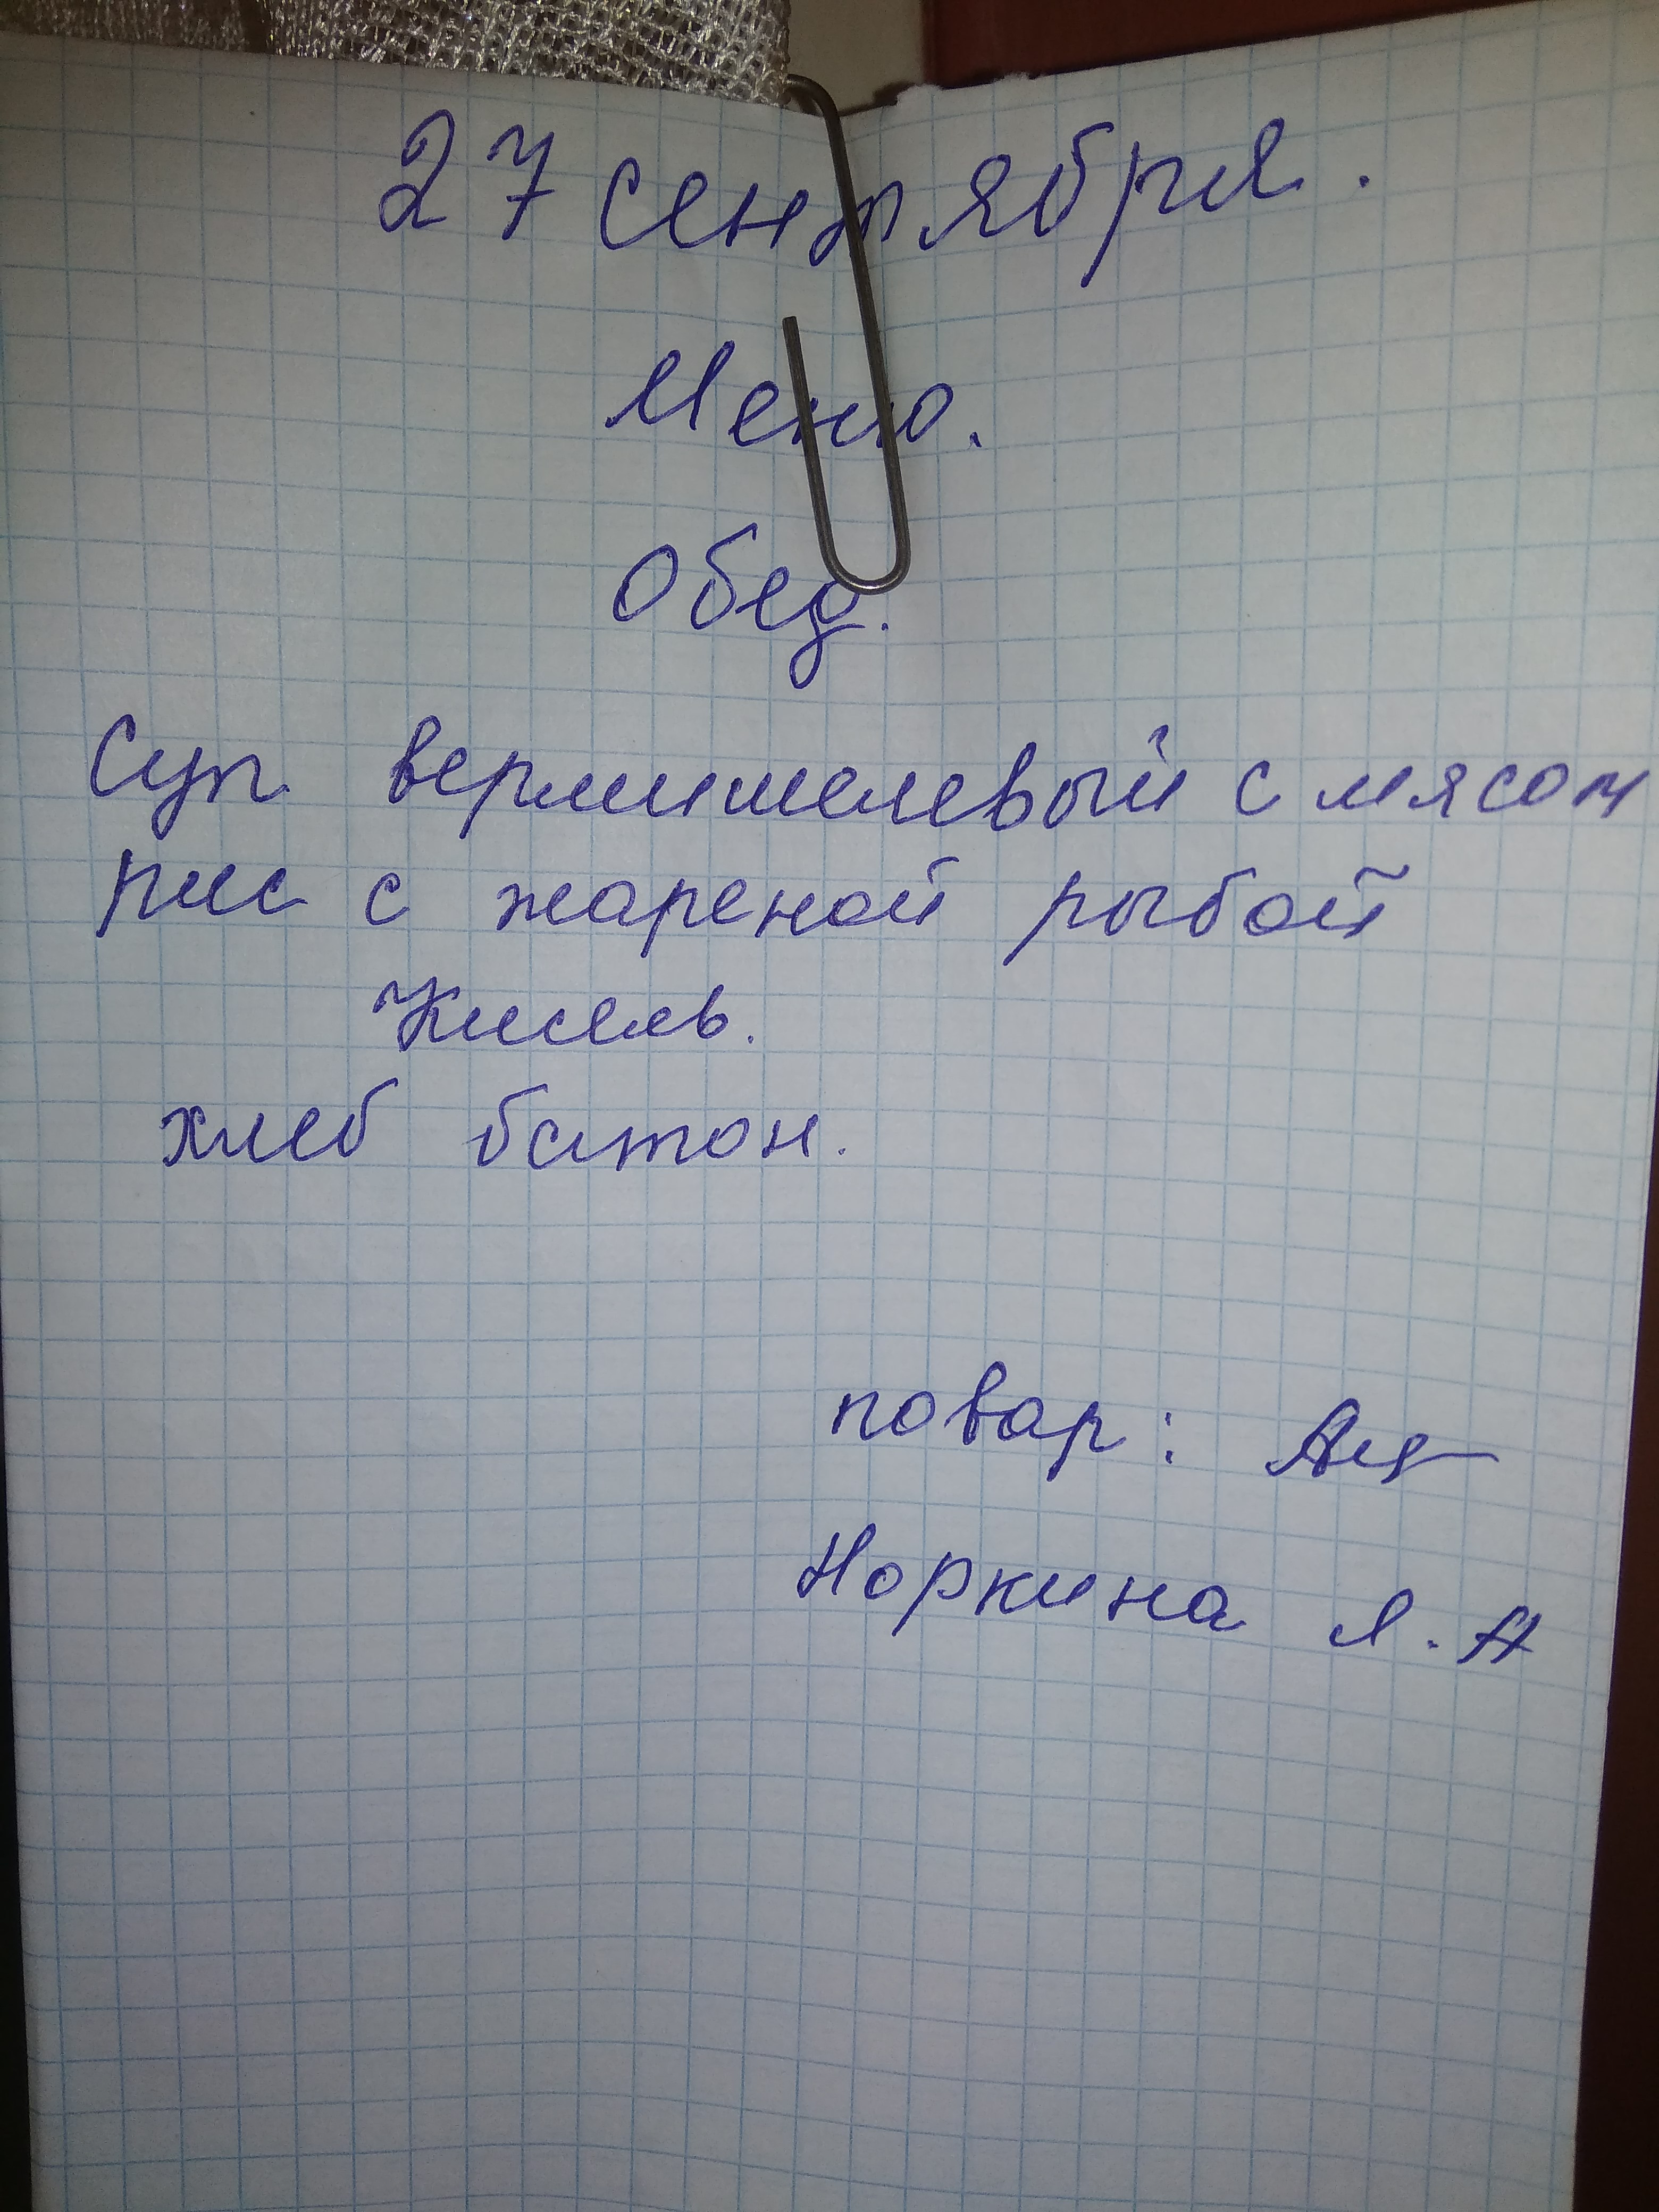 27 сентября.
Меню.
Обед.
Суп вермишелевый с мясом
рис с жареной рыбой
Кисель.
хлеб батон.
повар:
Норкина Я. А